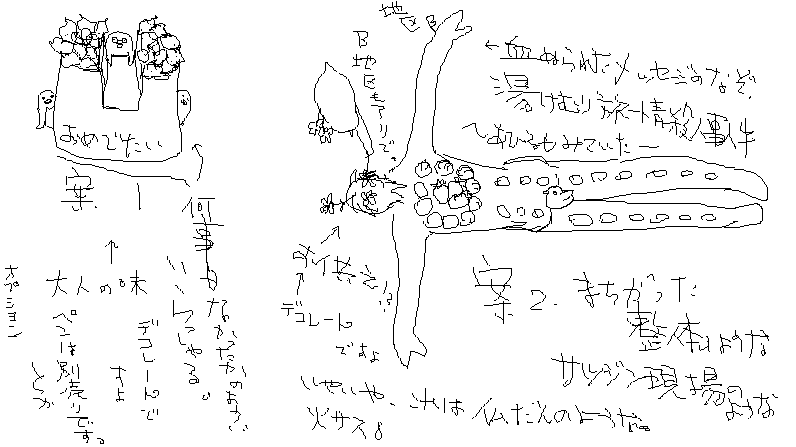 おめでたい
案 1
↑
大人の味
デコレートで
すよ
ペンは別売りです。
とか
オプション
何事もなかったかのおかお
いらっしゃる。
地区B
B地区もアリで。
←血ぬられたメッセージのなぞ、
湯けむり旅情殺人事件
〜あひるもみていた〜
ダイ共え!?
↑
デコレート
ですよ
案2. まちがった
整体のような
サツジン現場の
ような
いやいや、これは仏だんのようだ。
火サスよ